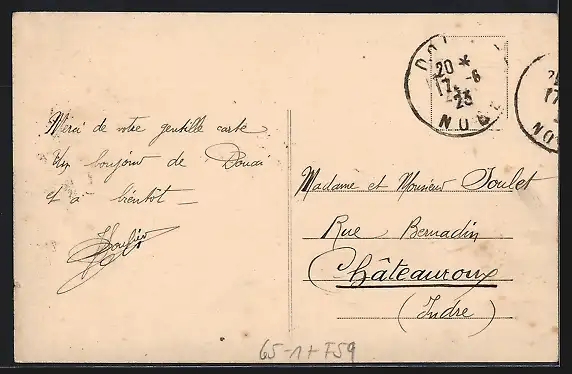 Merci de votre gentille carte
Un bonjour de Douai
et à bientôt —
20 *
17 - 6
23
NORD
Madame et Monsieur Poulet
Rue Bernadin
Châteauroux
(Indre)
65-1+F59